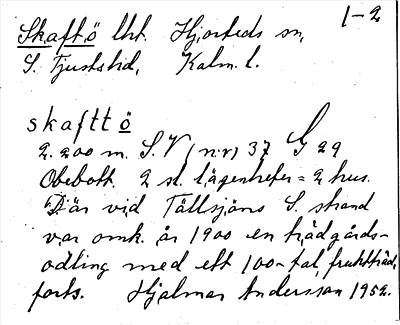 1-2
Skaftö lht. Hjorteds sn,
S. Tjusts hd, Kalm. l.
skafttö
2.200 m. S.V (n:r) 37 G 29
Obebott. 2 st. lägenheter = 2 hus.
"Där vid Tällsjöns S. strand
var omk. år 1900 en trädgårds-
odling med ett 100-tal fruktträd,
forts. Hjalmar Andersson 1952.